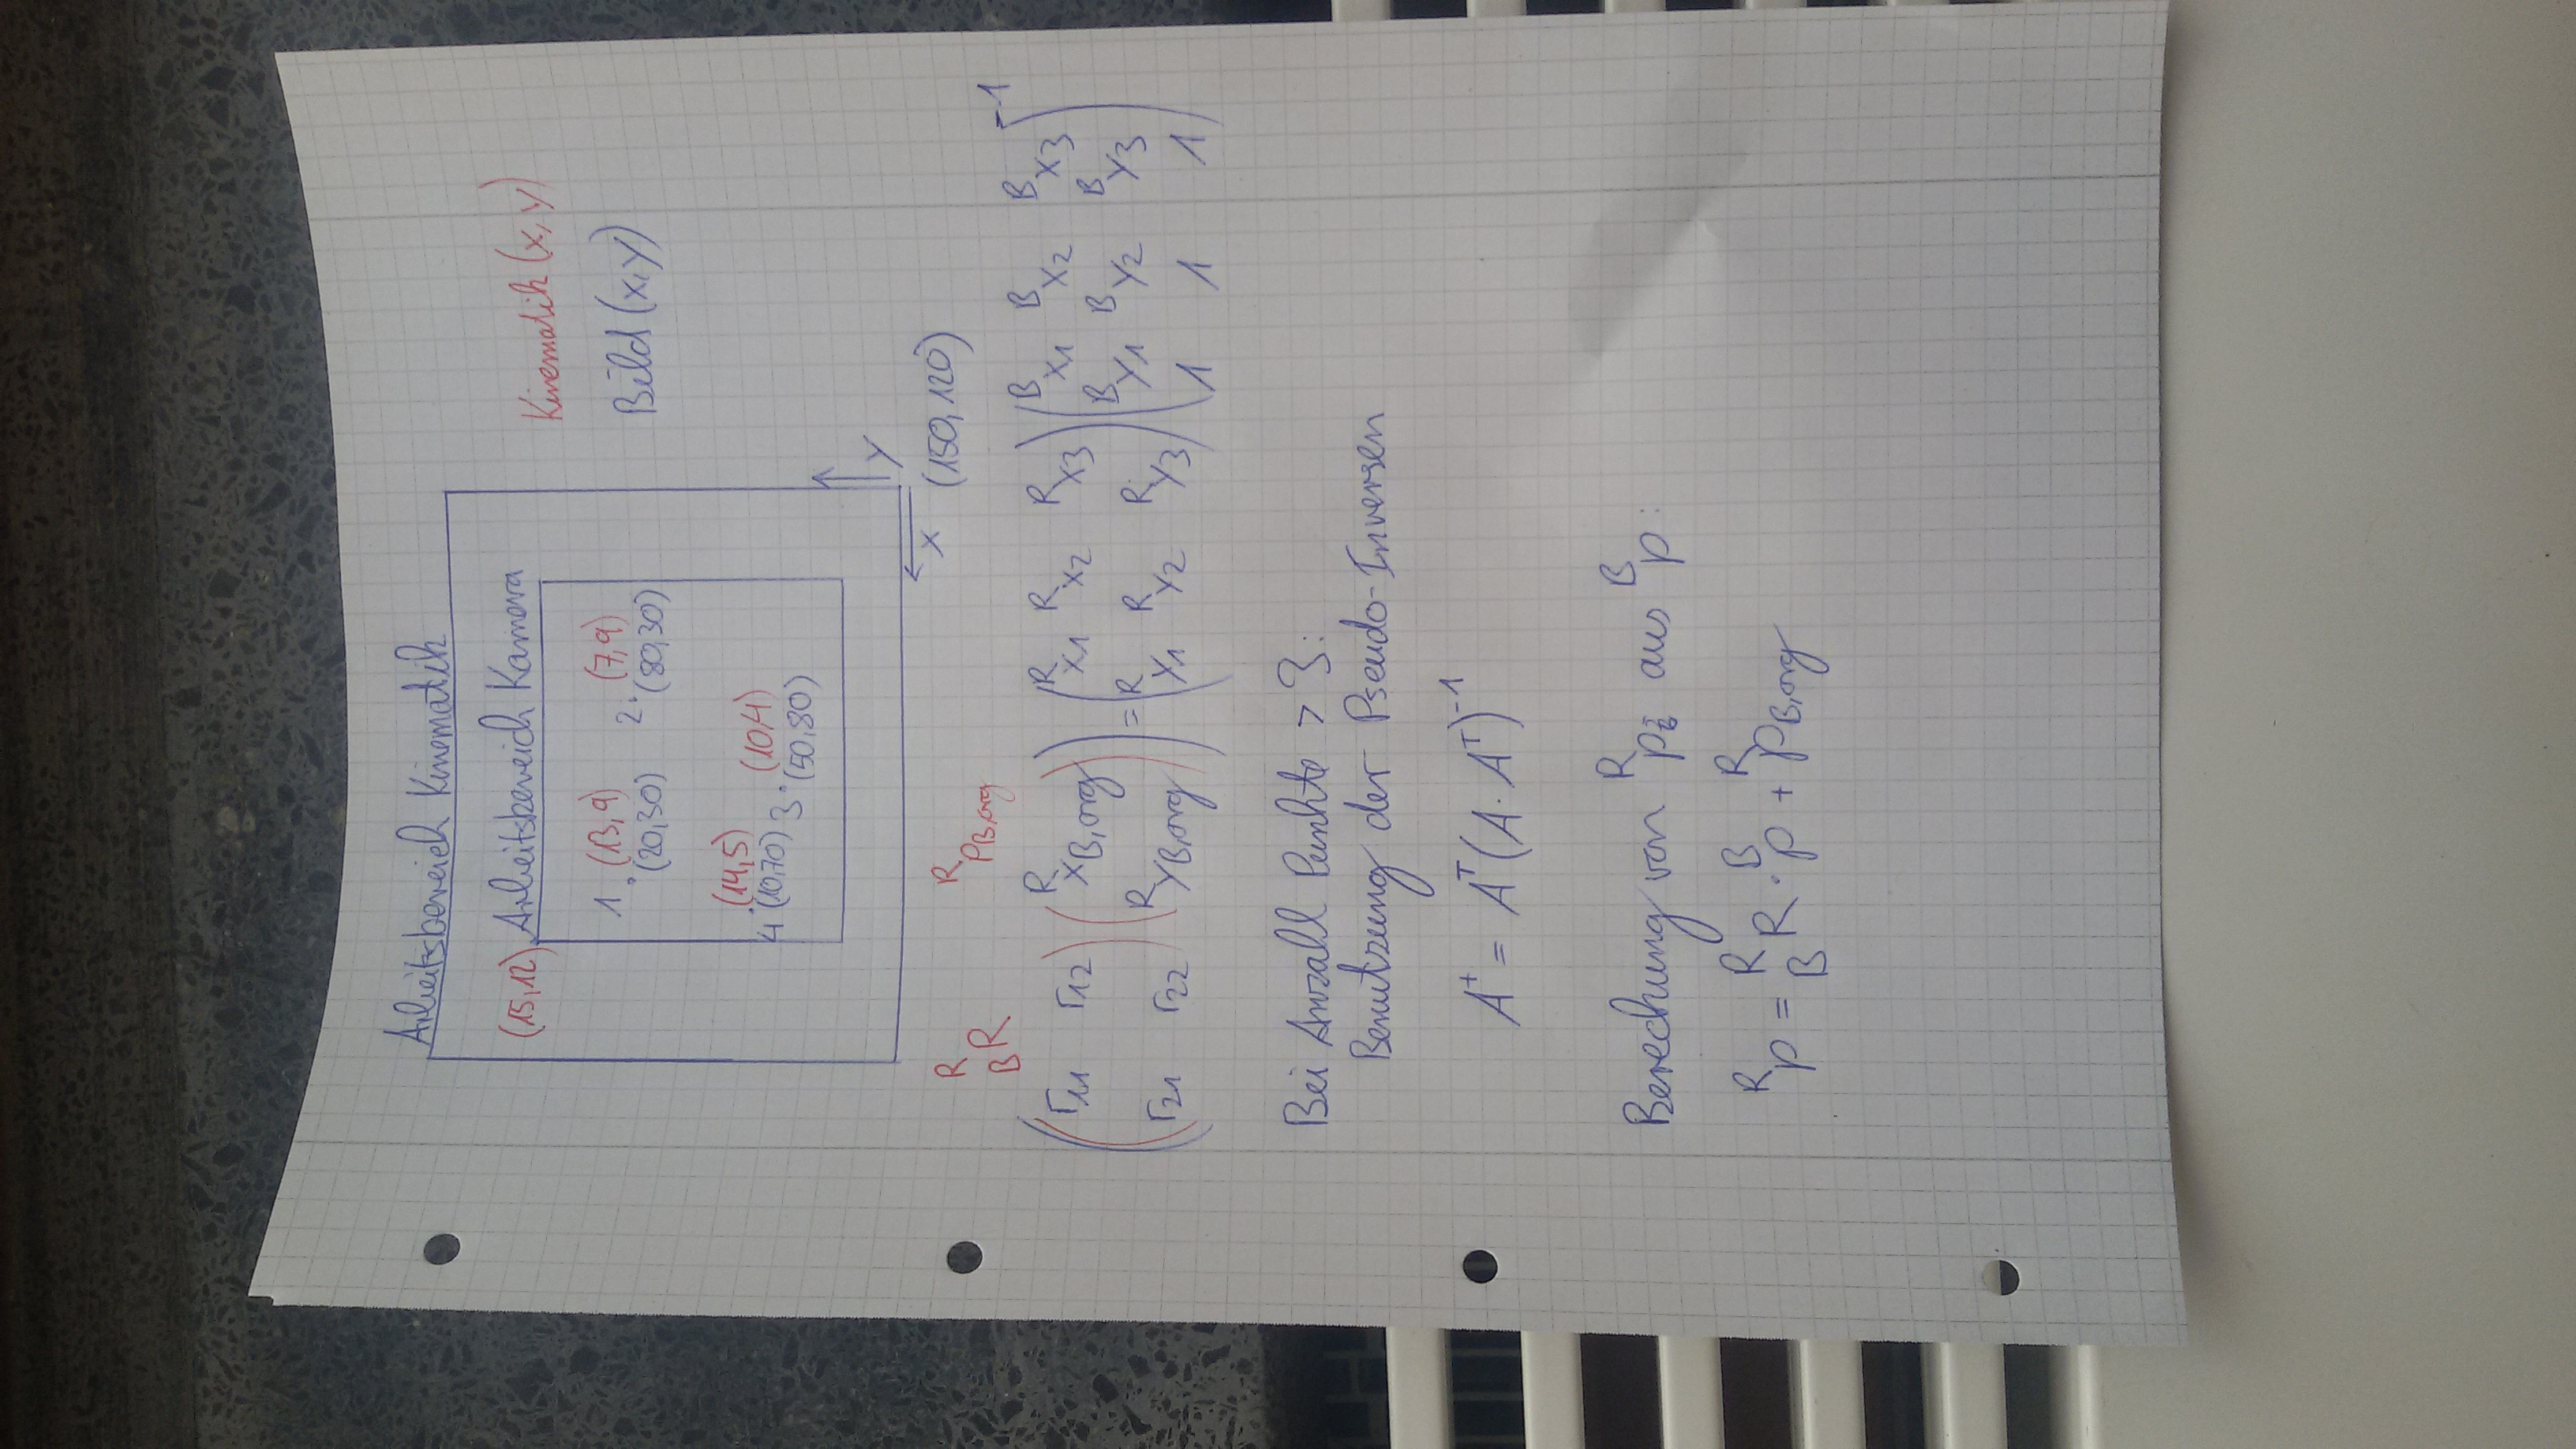 Arbeitsbereich Kinematik
(15,12) Arbeitsbereich Kamera
Kinematik (x, y)
Bild (x, y)
1 (13,9) 2 (7,9)
(20,30) (80,30)
(14,5) (10,4)
4 (10,70) 3 (50,80)
y
x (150, 120)
R R
B R P B,org
r11 r12 R x B,org = R x1 R x2 R x3 B x1 B x2 B x3 -1
r21 r22 R y B,org R y1 R y2 R y3 B y1 B y2 B y3
1 1 1
Bei Anzahl Punkte > 3:
Benutzung der Pseudo-Inversen
A⁺ = Aᵀ(A · Aᵀ)⁻¹
Berechung von R p aus B p :
R p = R B R · B p + R p B,org